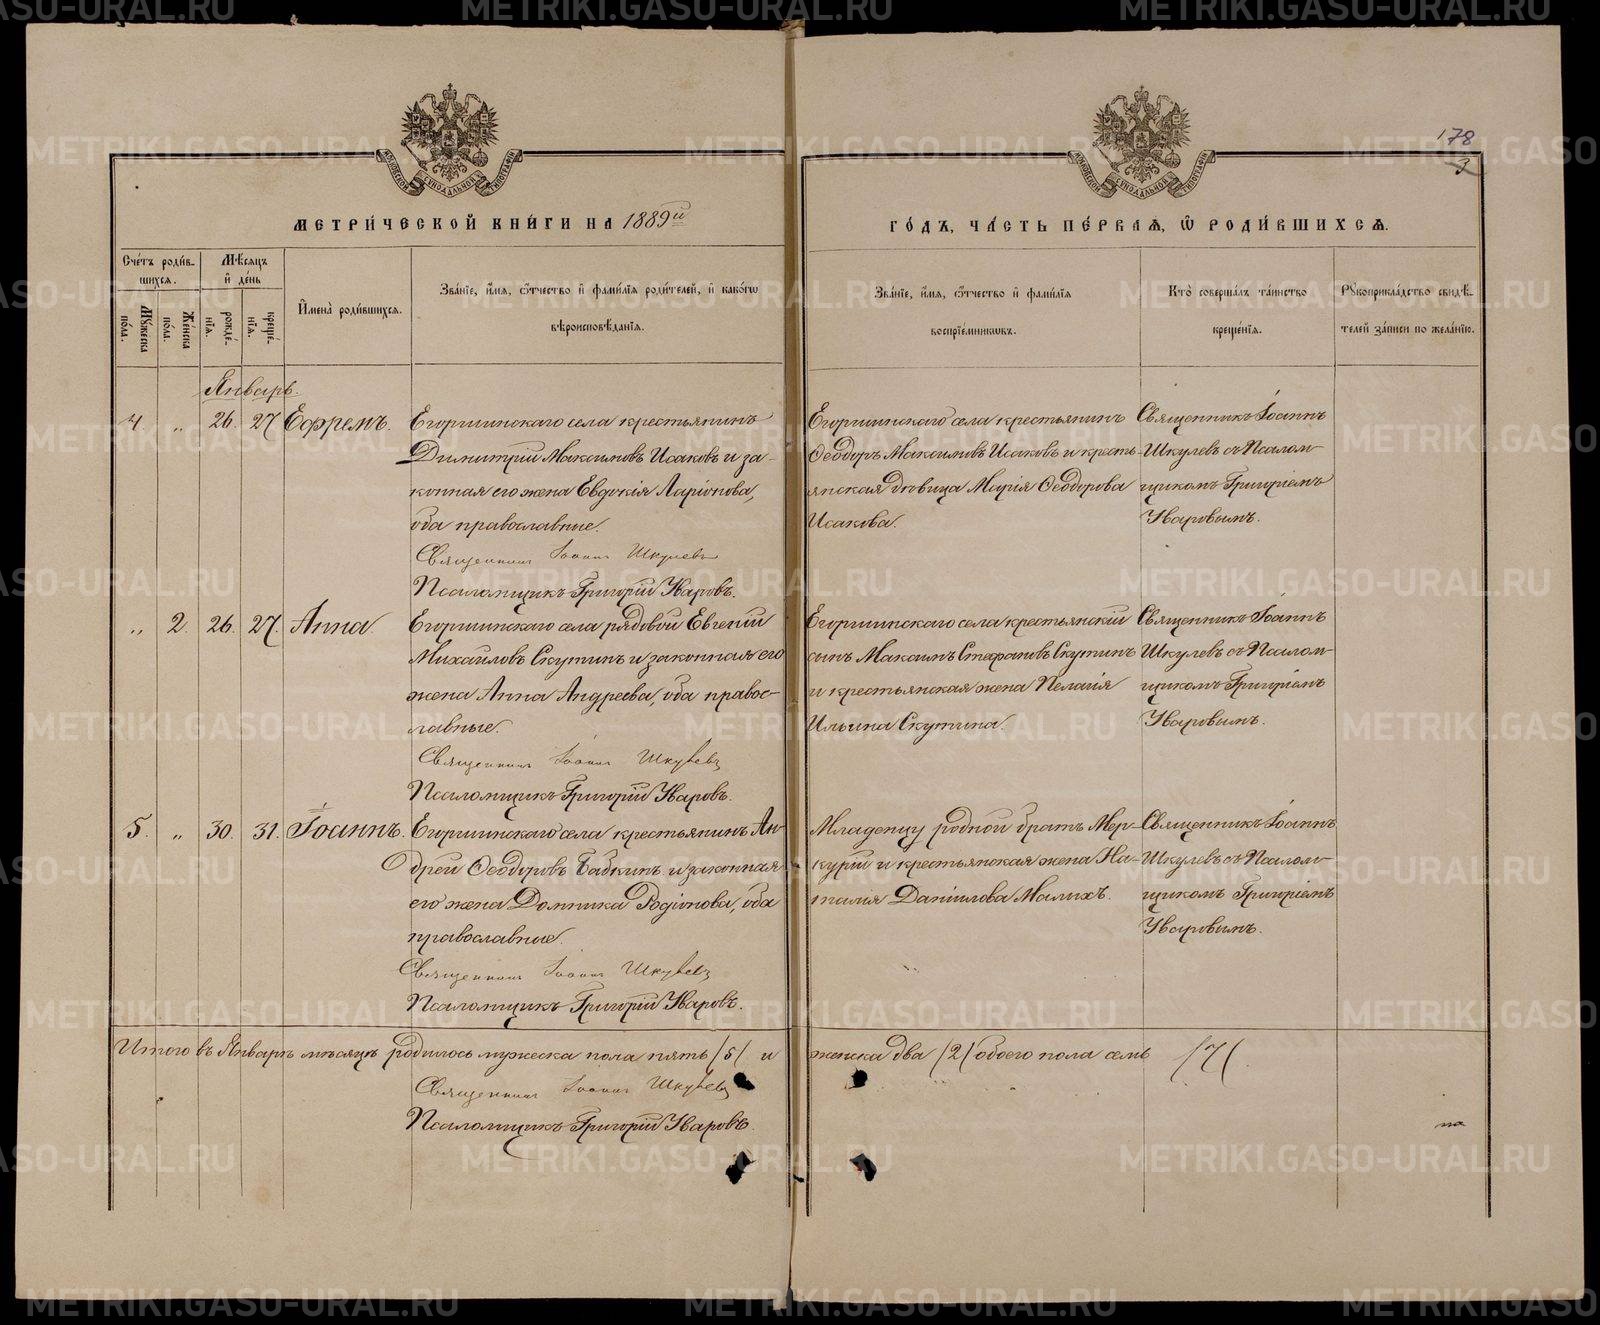 178
3
МОСКОВСКОЙ СѴНОДАЛЬНОЙ ТИПОГРАФІИ
МОСКОВСКОЙ СѴНОДАЛЬНОЙ ТИПОГРАФІИ
МЕТРИ́ЧЕСКОЙ КНИ́ГИ НА 1889й
ГО́ДЪ, ЧА́СТЬ ПЕ́РВАѦ, Ѡ РОДИ́ВШИХСѦ.
Сче́тъ роди́в-
шихсѧ.
Мꙋ́жеска по́ла.
Же́нска по́ла.
Мѣ́сѧцъ
и҆ де́нь
рожде́-нїѧ.
креще́-нїѧ.
И҆мена̀ роди́вшихсѧ.
Зва́нїе, и҆́мѧ, ѻ҆́тчество и҆ фами́лїѧ роди́телей, и҆ како́гѡ
вѣроисповѣ́данїѧ.
Зва́нїе, и҆́мѧ, ѻ҆́тчество и҆ фами́лїѧ
воспрїе́мникѡвъ.
Кто̀ соверша́лъ та́инство
креще́нїѧ.
Рꙋкоприкла́дство свидѣ́-
телей за́писи по жела́нїю.
Январь.
4. " 26. 27 Ефремъ.
Егоршинскаго села крестьянинъ
Димитрій Максимовъ Исаковъ и за-
конная его жена Евдокія Ларіонова,
оба православные.
Священникъ Іоаннъ Шкулевъ
Псаломщикъ Григорій Уваровъ.
Егоршинскаго села крестьянинъ
Ѳеодоръ Максимовъ Исаковъ и кресть-
янская дѣвица Марія Ѳеодорова
Исакова.
Священникъ Іоаннъ
Шкулевъ съ Псалом-
щикомъ Григоріемъ
Уваровымъ.
" 2. 26. 27. Анна.
Егоршинскаго села рядовой Евгеній
Михайловъ Скутинъ и законная его
жена Анна Андреева, оба правос-
лавные.
Священникъ Іоаннъ Шкулевъ
Псаломщикъ Григорій Уваровъ.
Егоршинскаго села крестьянскій
сынъ Максимъ Стефановъ Скутинъ
и крестьянская жена Пелагія
Ильина Скутина.
Священникъ Іоаннъ
Шкулевъ съ Псалом-
щикомъ Григоріемъ
Уваровымъ.
5. " 30. 31. Іоаннъ.
Егоршинскаго села крестьянинъ Ан-
дрей Ѳеодоровъ Бабкинъ и законная
его жена Домника Родіонова, оба
православные.
Священникъ Іоаннъ Шкулевъ
Псаломщикъ Григорій Уваровъ.
Младенцу родной братъ Мер-
курій и крестьянская жена На-
талія Даніилова Малыхъ.
Священникъ Іоаннъ
Шкулевъ съ Псалом-
щикомъ Григоріемъ
Уваровымъ.
Итого въ Январѣ мѣсяцѣ родилось мужеска пола пять /5/ и женска два /2/ обоего пола семь /7/.
Священникъ Іоаннъ Шкулевъ
Псаломщикъ Григорій Уваровъ.
METRIKI.GASO-URAL.RU